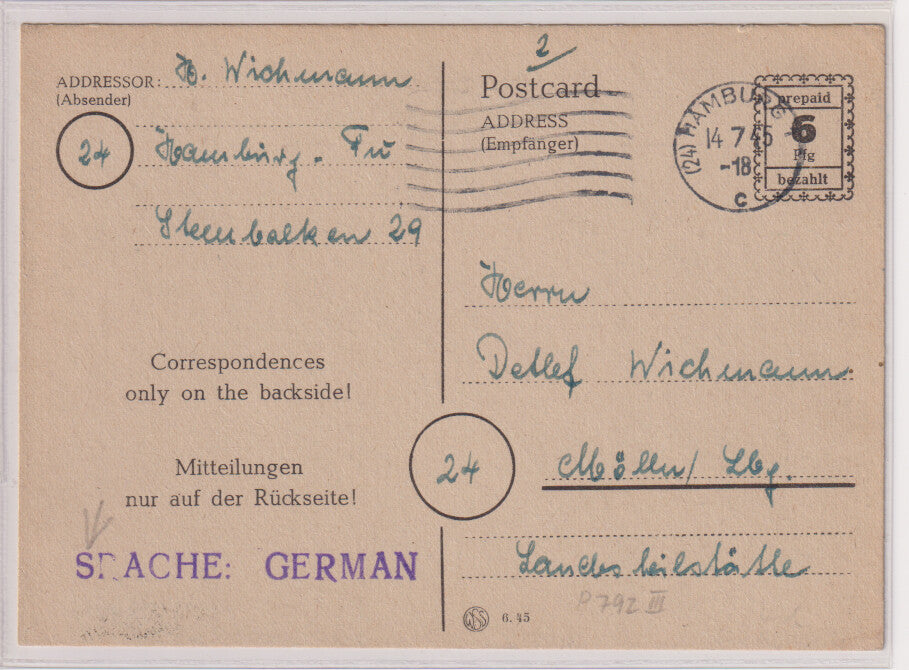 ADDRESSOR: H. Wichmann
(Absender)
24
Hamburg - Fu
Steenbalken 29
Correspondences
only on the backside!
Mitteilungen
nur auf der Rückseite!
SPACHE: GERMAN
2
Postcard
ADDRESS
(Empfänger)
(24) HAMBURG
14.7.45
-18
c
prepaid
6
Pfg
bezahlt
Herrn
Detlef Wichmann
24
Mölln/Lbg.
Landesheilstätte
P 792 III
WSS 6.45